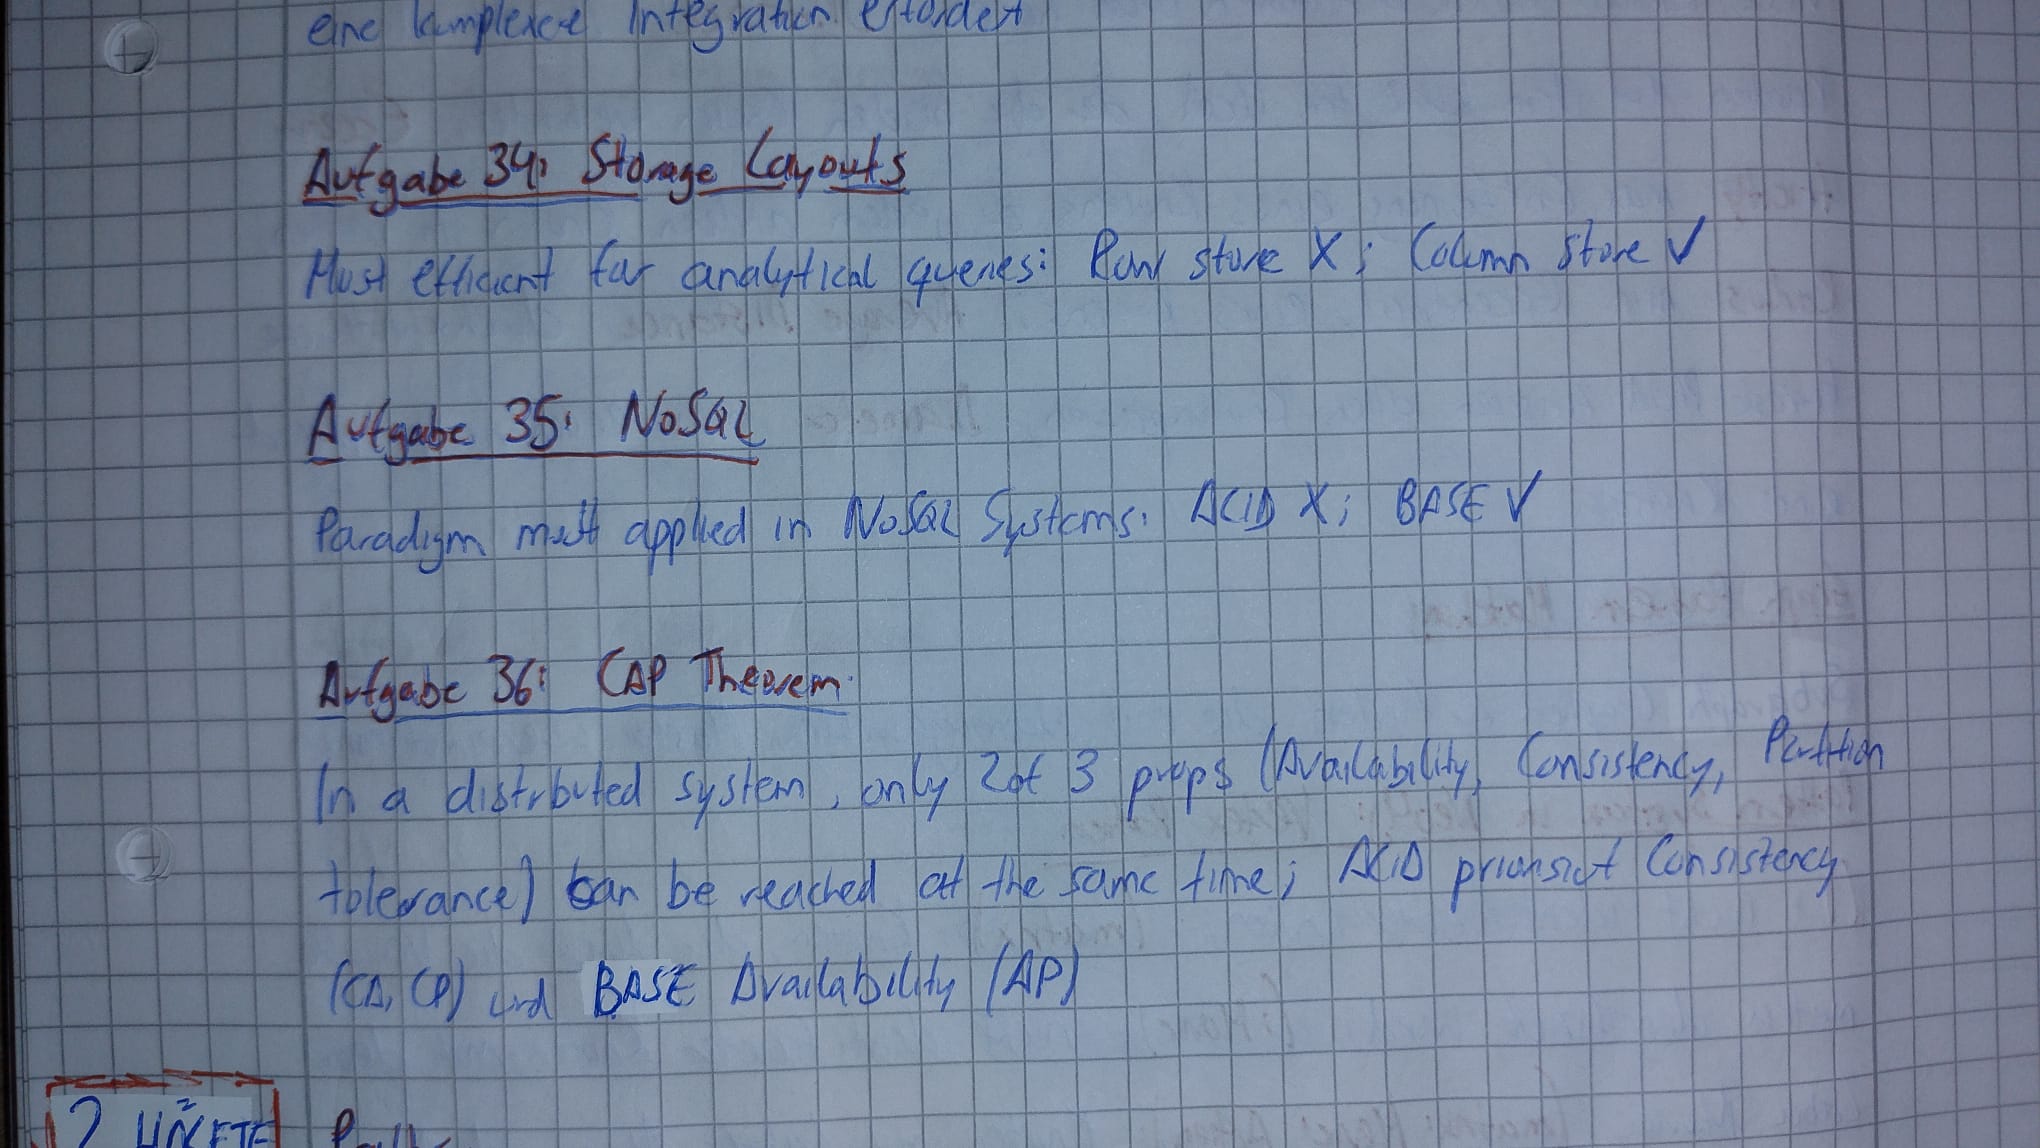 eine komplexere Integration erfordert
Aufgabe 34: Storage Layouts
Most efficient for analytical queries: Row store X; Column store ✓
Aufgabe 35: NoSQL
Paradigm most applied in NoSQL Systems: ACID X; BASE ✓
Aufgabe 36: CAP Theorem
In a distributed system, only 2 of 3 props (Availability, Consistency, Partition
tolerance) can be reached at the same time; ACID priorisiert Consistency
(CA, CP) und BASE Availability (AP)